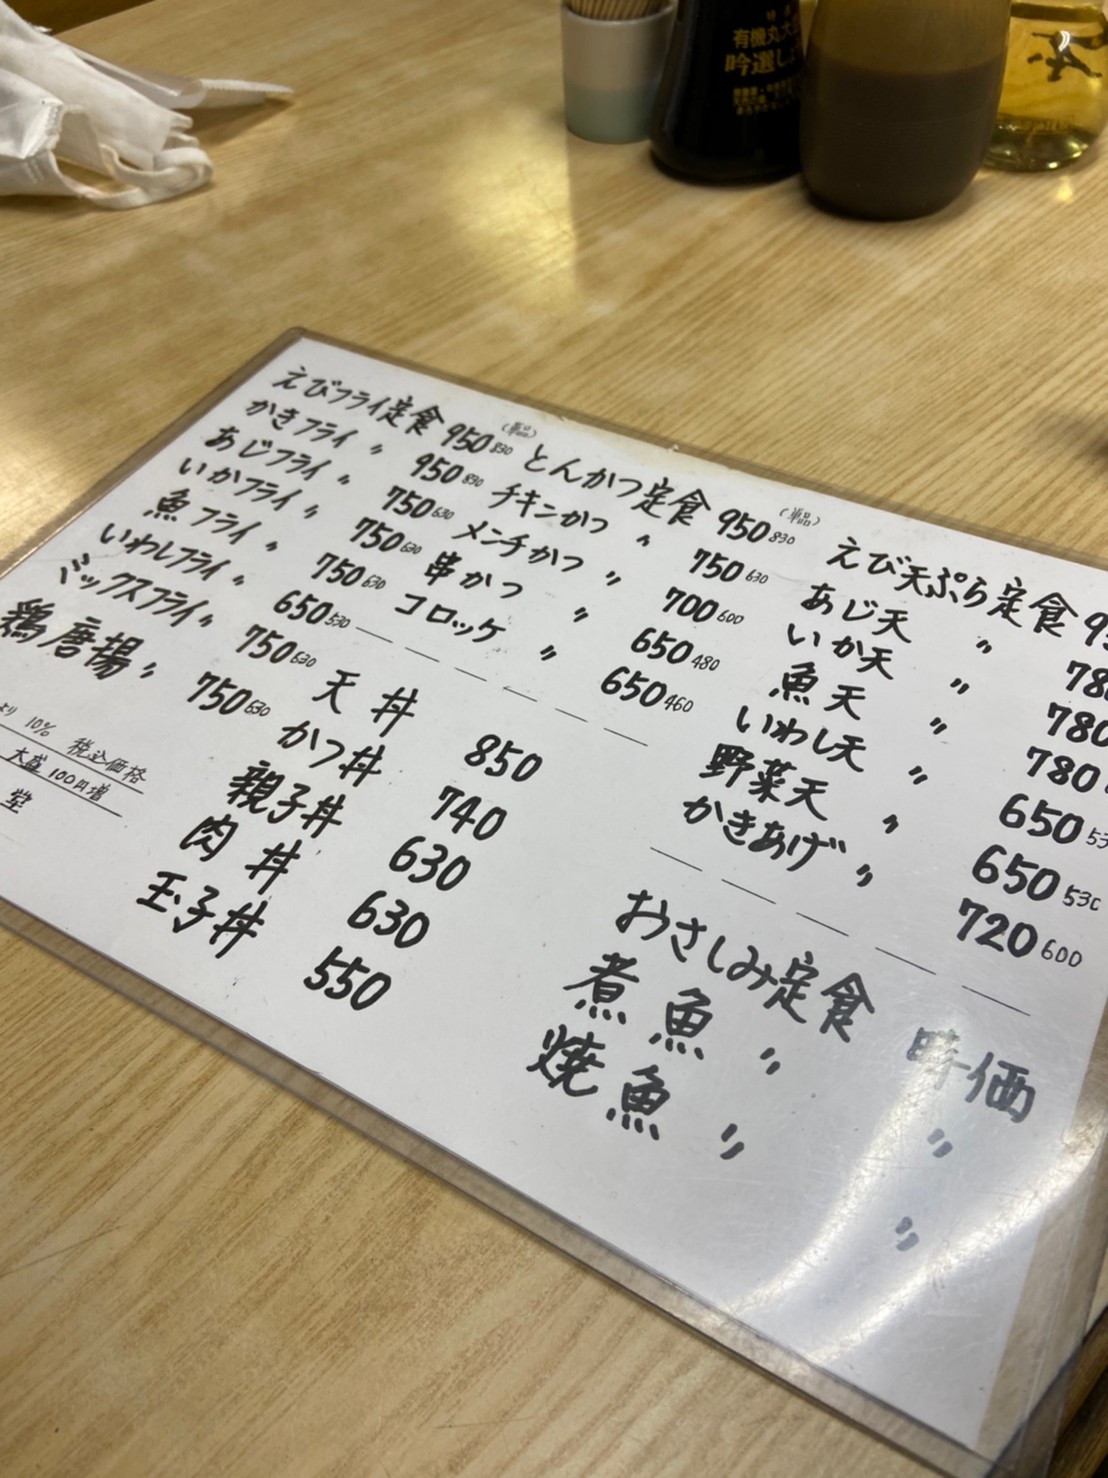 有機丸大
吟選しょ
(単品)
えびフライ定食 950 830
かきフライ 〃 950 830
あじフライ 〃 750 630
いかフライ 〃 750 630
魚フライ 〃 750 630
いわしフライ 〃 650 530
ミックスフライ 〃 750 630
鶏唐揚 〃 750 630
より 10% 税込価格
大盛 100円増
堂
(単品)
とんかつ定食 950 830
チキンかつ 〃 750 630
メンチかつ 〃 700 600
串かつ 〃 650 480
コロッケ 〃 650 460
天丼 850
かつ丼 740
親子丼 630
肉丼 630
玉子丼 550
えび天ぷら定食 95
あじ天 〃 780
いか天 〃 780
魚天 〃 780
いわし天 〃 650 53
野菜天 〃 650 530
かきあげ 〃 720 600
おさしみ定食 時価
煮魚 〃 〃
焼魚 〃 〃